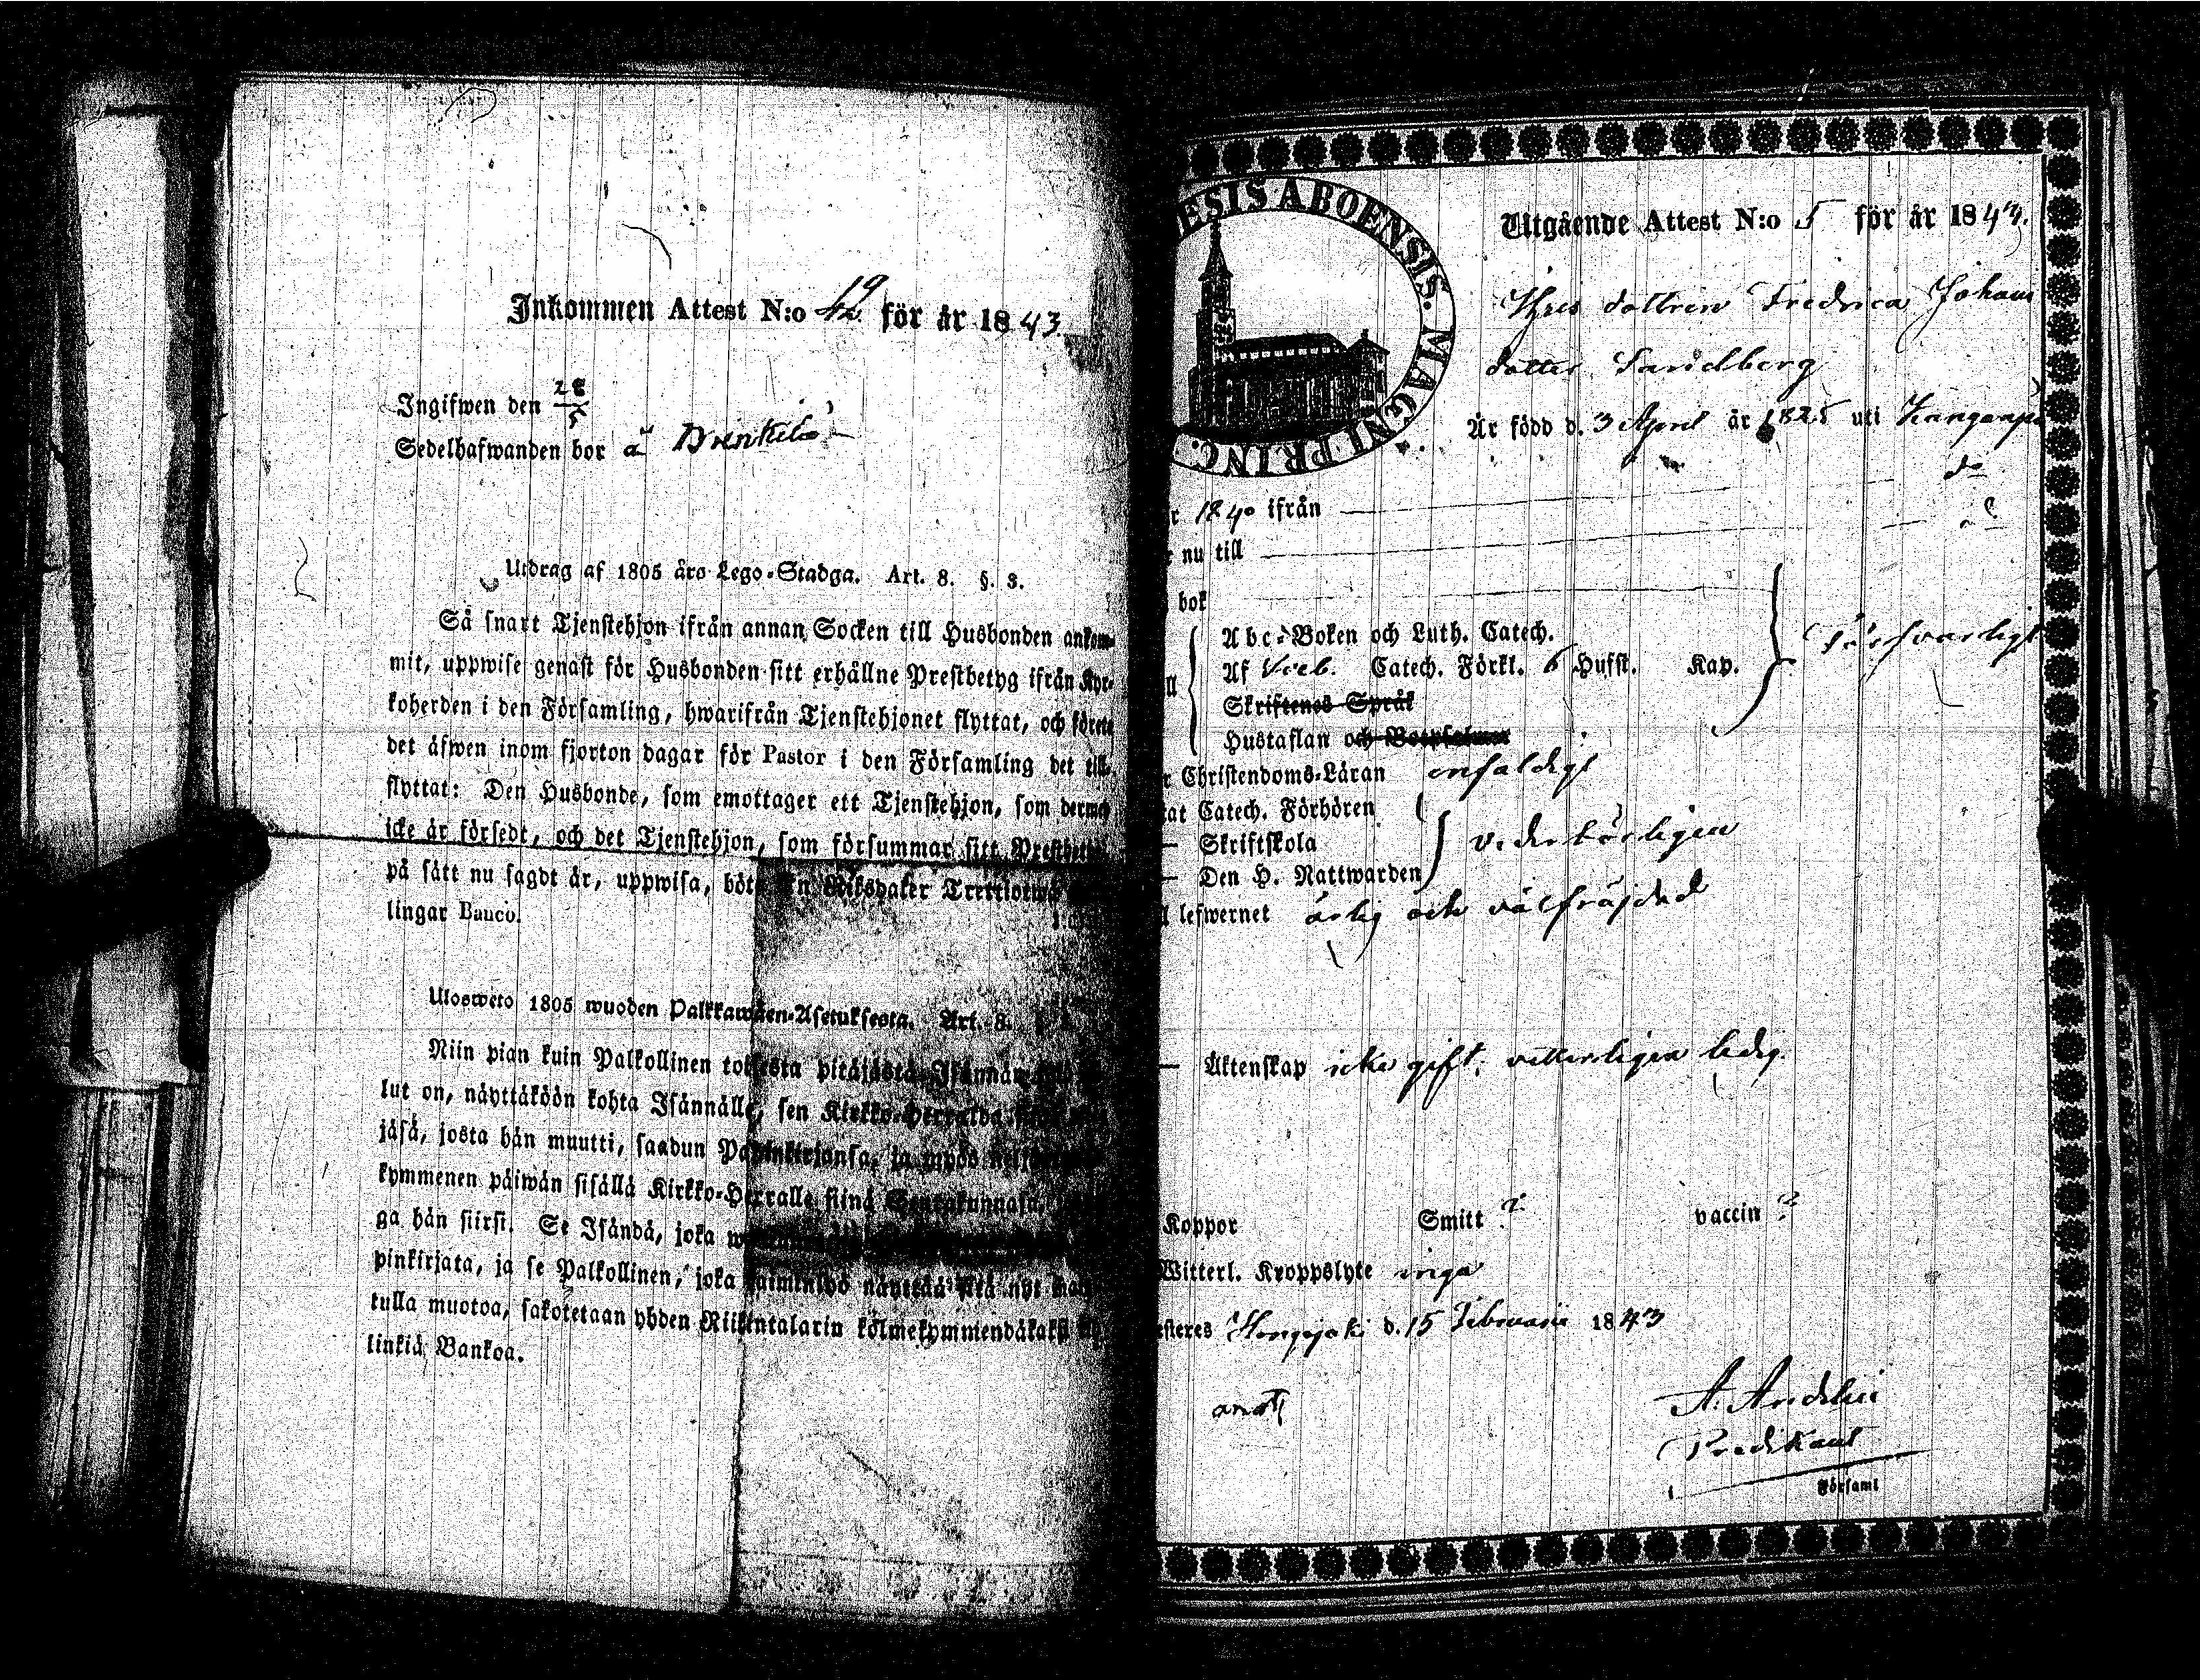 Inkommen Attest N:o 19 för år 1843.
Ingifwen den 28/5
Sedelhafwanden bor å
Utdrag af 1805 års Lego-Stadga. Art. 8. §. 3.
Så snart Tjenstehjon ifrån annan Socken till Husbonden ankom-
mit, uppwise genast för Husbonden sitt erhållne Prestbetyg ifrån Kyr-
koherden i den Församling, hwarifrån Tjenstehjonet flyttat, och förete
det äfwen inom fjorton dagar för Pastor i den Församling det till-
flyttat: Den Husbonde, som emottager ett Tjenstehjon, som dermed
icke är försedt, och det Tjenstehjon, som försummar sitt
på sätt nu sagdt är, uppwisa, böte En Riksdaler
lingar Banco.
Ulosweto 1805 wuoden Palkkawäen-Asetuksesta. Art. 8.
Niin pian kuin Palkollinen toisesta pitäjästä Isännän
lut on, näyttäköön kohta Isännälle, sen Kirkko-Herralda
jäsä, josta hän muutti, saadun Papinkirjansa, ja myös
kymmenen päiwän sisällä Kirkko-Herralle siinä Seurakunnasa,
ga hän siirsi. Se Isändä, joka
pinkirjata, ja se Palkollinen, joka laiminlyö näyttää sitä nyt
tulla muotoa, sakotetaan yhden Riikintalarin kolmekymmendäkaksi
linkiä Bankoa.
ESIS ABOENSIS. MAGNI PRINC.
Utgående Attest N:o 5 för år 1843.
dottren Fredrica Johans
dotter Sandberg
Är född d. 3 April år 1825 uti
do
r 1840 ifrån
r nu till
bok
Abc-Boken och Luth. Catech.
Af Sveb. Catech. Förkl. 6 Hufst. Kap. Försvarligt
Skriftenes Språk
Hustaflan och
r Christendoms-Läran enfaldigt
tat Catech. Förhören
— Skriftskola vederbörligen
— Den H. Nattwarden
l lefwernet ärlig och välfräjdad
— Äktenskap icke gift, vitterligen ledig.
Koppor Smitt ? vaccin ?
Witterl. Kroppslyte inga
esteres d. 15 Februarii 1843
Predikant
Församl